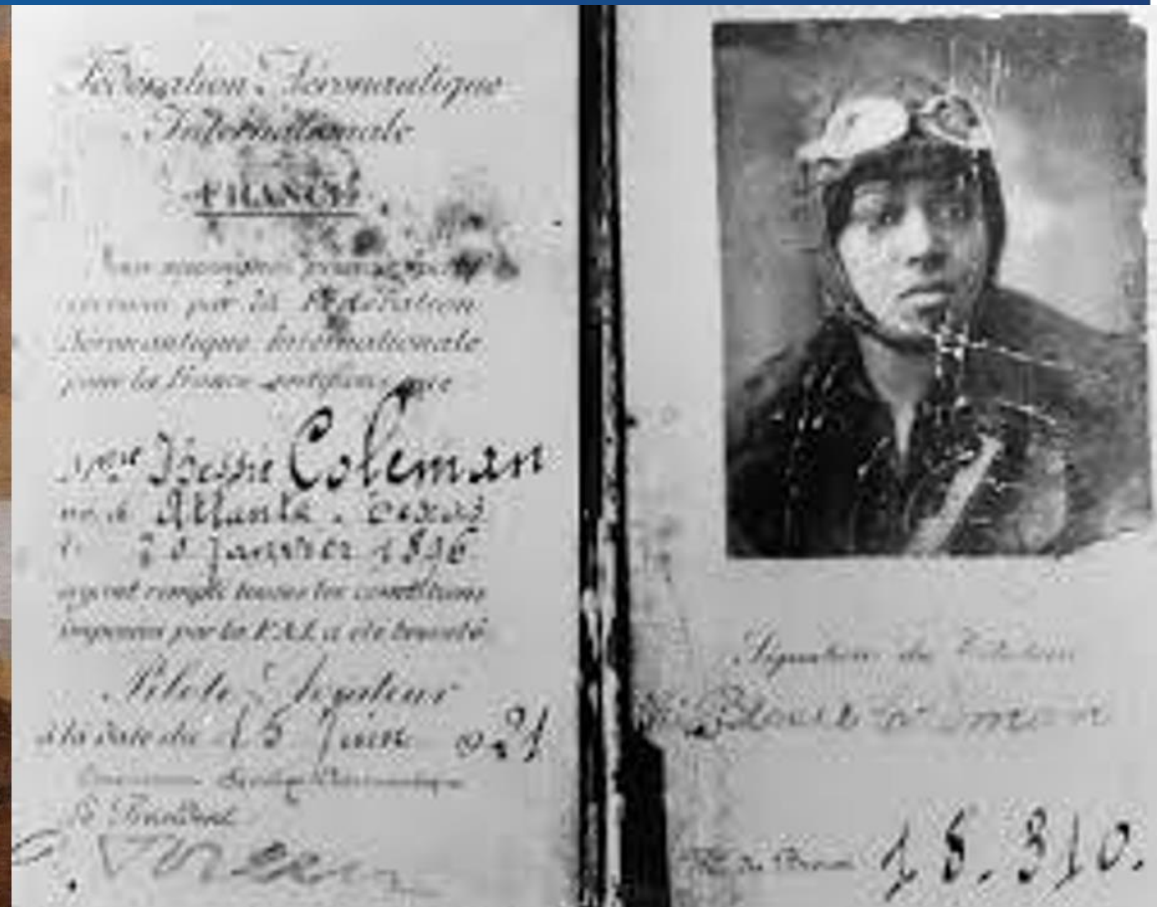 Fédération Aéronautique
Internationale
FRANCE
Nous soussignés
par la Fédération
Aéronautique Internationale
pour la France certifions que
Mme Bessie Coleman
né à Atlanta, Texas
le 20 Janvier 1896
ayant rempli toutes les conditions
imposées par la F.A.I. a été breveté
Pilote-Aviateur
à la date du 15 Juin 1921
Le Président
Signature du Titulaire
Bessie Coleman
No du Brevet 18.310.